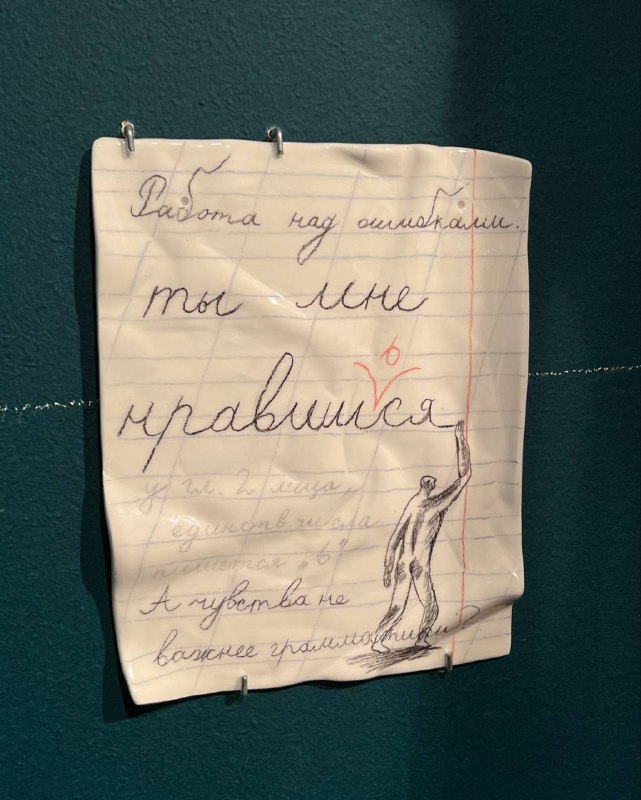 Работа над ошибками.
ты мне
ь
нравишся
у гл. 2 лица,
единств. числа
пишется „ь"
А чувства не
важнее грамматики?